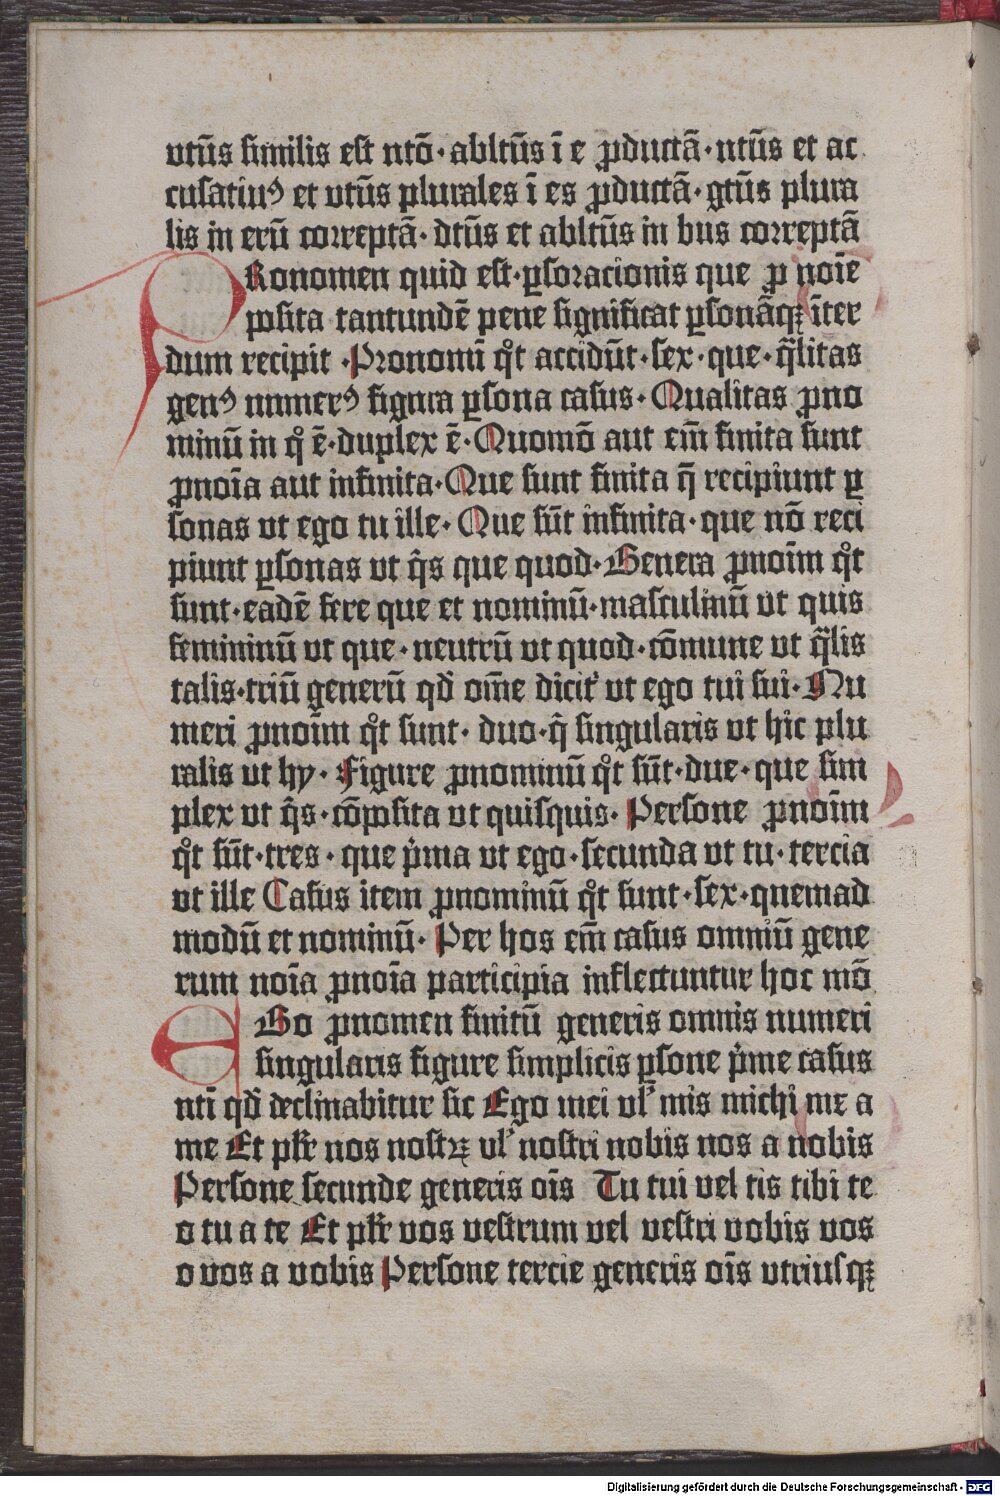 vtūs similis est ntō· abltūs ī e ꝓductā· ntūs et ac
cusatiuꝰ et vtūs plurales ī es ꝓductā· gtūs plura
lis in erū correptā· dtūs et abltūs in bus correptā
PRonomen quid est· ꝑs oracionis que ꝓ noīe
posita tantundē pene significat ꝑsonāqꝫ īter
dum recipit ·Pronomī qͦt accidūt· sex· que· q̄litas
genꝰ numerꝰ figura ꝑsona casus· Qualitas ꝓno
minū in qͦ ē· duplex ē· Quomō aut em̄ finita sunt
ꝓnoīa aut infinita· Que sunt finita q̄ recipiunt ꝑ
sonas vt ego tu ille· Que sūt infinita· que nō reci
piunt ꝑsonas vt q̄s que quod· Genera ꝓnoīm qͦt
sunt· eadē fere que et nominū· masculinū vt quis
femininū vt que· neutrū vt quod· cōmune vt q̄lis
talis· triū generū qd̄ om̄e dicitᷣ vt ego tui sui· Nu
meri ꝓnoīm qͦt sunt· duo· q̄ singularis vt hic plu
ralis vt hy· Figure ꝓnominū qͦt sūt· due· que sim
plex vt q̄s· cōposita vt quisquis· Persone ꝓnoīm
qͦt sūt· tres· que pͥma vt ego· secunda vt tu· tercia
vt ille Casus item ꝓnominū qͦt sunt· sex· quemad
modū et nominū· Per hos em̄ casus omniū gene
rum noīa ꝓnoīa participia inflectuntur hoc mō
EGo ꝓnomen finitū generis omnis numeri
singularis figure simplicis ꝑsone pͥme casus
ntī qd̄ declinabitur sic Ego mei vlᷣ mis michi me a
me Et plr̄ nos nostrꝫ vlᷣ nostri nobis nos a nobis
Persone secunde generis oīs Tu tui vel tis tibi te
o tu a te Et plr̄ vos vestrum vel vestri vobis vos
o vos a vobis Persone tercie generis oīs vtriusqꝫ
Digitalisierung gefördert durch die Deutsche Forschungsgemeinschaft - DFG